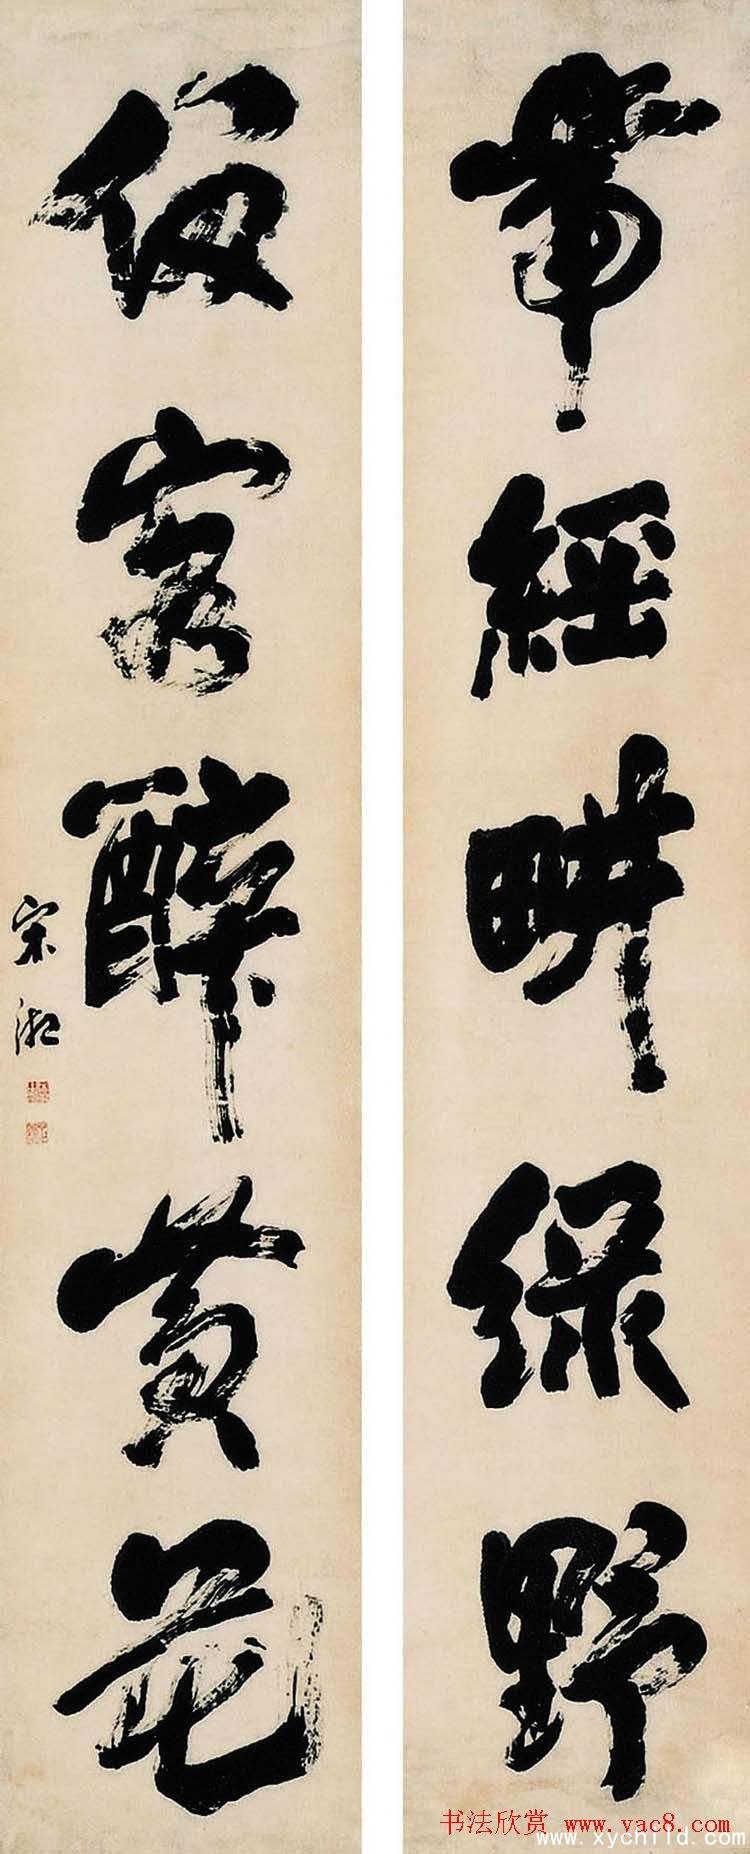 帶經畊緑野
留客醉黄花
宋湘
书法欣赏 www.yac8.com
www.xychild.com